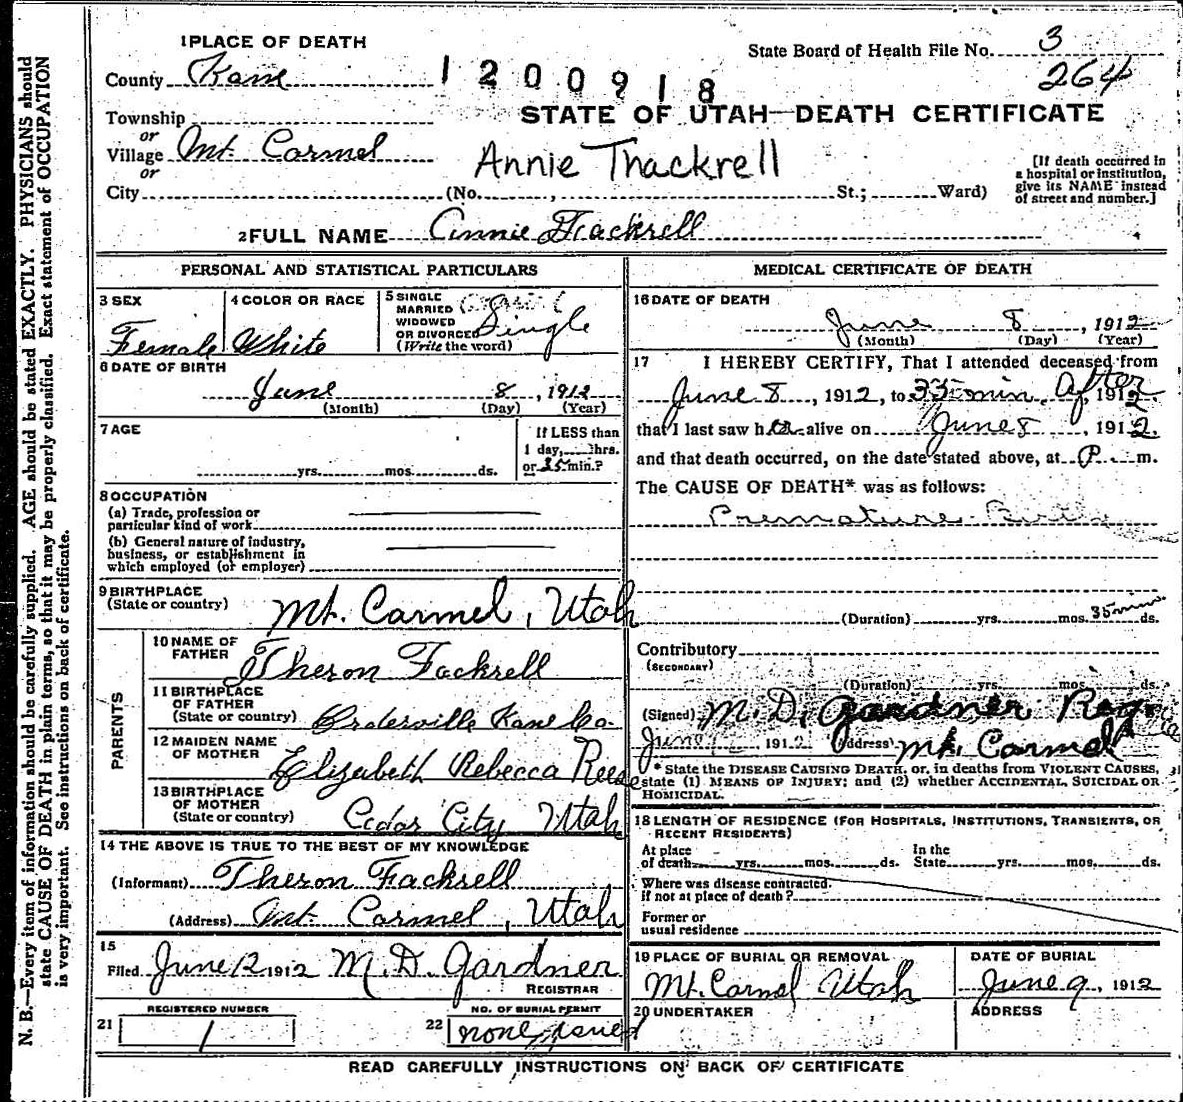 1 PLACE OF DEATH
State Board of Health File No. 3
County Kane
1200918
264
STATE OF UTAH—DEATH CERTIFICATE
Township
or
Village Mt. Carmel
or
Annie Thackrell
[If death occurred in
a hospital or institution,
give its NAME instead
of street and number.]
City (No. , St.; Ward)
2 FULL NAME Annie Fackrell
PERSONAL AND STATISTICAL PARTICULARS
3 SEX
Female
4 COLOR OR RACE
White
5 SINGLE
MARRIED
WIDOWED
OR DIVORCED
(Write the word)
Single
6 DATE OF BIRTH
June 8, 1912
(Month) (Day) (Year)
7 AGE
yrs. mos. ds.
If LESS than
1 day, hrs.
or 35 min.?
8 OCCUPATION
(a) Trade, profession or
particular kind of work
(b) General nature of industry,
business, or establishment in
which employed (or employer)
9 BIRTHPLACE
(State or country)
Mt. Carmel, Utah
PARENTS
10 NAME OF
FATHER
Theron Fackrell
11 BIRTHPLACE
OF FATHER
(State or country)
Orderville Kane Co.
12 MAIDEN NAME
OF MOTHER
Elizabeth Rebecca Reese
13 BIRTHPLACE
OF MOTHER
(State or country)
Cedar City Utah
14 THE ABOVE IS TRUE TO THE BEST OF MY KNOWLEDGE
(Informant) Theron Fackrell
(Address) Mt. Carmel, Utah
15
Filed June 12 1912 M. D. Gardner
REGISTRAR
REGISTERED NUMBER
21 1
NO. OF BURIAL PERMIT
22 none issued
MEDICAL CERTIFICATE OF DEATH
16 DATE OF DEATH
June 8, 1912
(Month) (Day) (Year)
17 I HEREBY CERTIFY, That I attended deceased from
June 8, 1912, to 35 min. After, 1912
that I last saw her alive on June 8, 1912.
and that death occurred, on the date stated above, at P. m.
The CAUSE OF DEATH* was as follows:
Premature Birth
(Duration) yrs. mos. 35 min ds.
Contributory
(SECONDARY)
(Duration) yrs. mos. ds.
(Signed) M. D. Gardner
June 1912 (Address) Mt. Carmel
* State the DISEASE CAUSING DEATH, or, in deaths from VIOLENT CAUSES,
state (1) MEANS OF INJURY; and (2) whether ACCIDENTAL, SUICIDAL OR
HOMICIDAL.
18 LENGTH OF RESIDENCE (FOR HOSPITALS, INSTITUTIONS, TRANSIENTS, OR
RECENT RESIDENTS)
At place
of death yrs. mos. ds.
In the
State yrs. mos. ds.
Where was disease contracted,
if not at place of death?
Former or
usual residence
19 PLACE OF BURIAL OR REMOVAL
Mt. Carmel Utah
DATE OF BURIAL
June 9, 1912
20 UNDERTAKER
ADDRESS
READ CAREFULLY INSTRUCTIONS ON BACK OF CERTIFICATE
N. B.—Every item of information should be carefully supplied. AGE should be stated EXACTLY. PHYSICIANS should
state CAUSE OF DEATH in plain terms, so that it may be properly classified. Exact statement of OCCUPATION
is very important. See instructions on back of certificate.